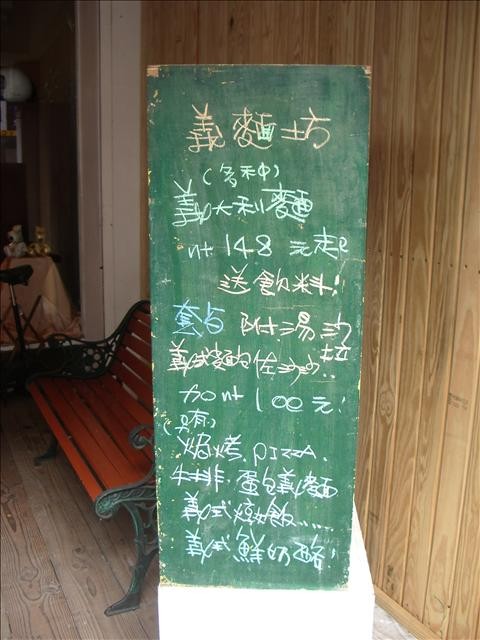 義麵坊
(多种)
義大利麵
nt 148 元起
送飲料!
套占 附湯沙拉
義式麵包佐沙沙..
加nt 100元!
(另有)
焗烤.PIZZA.
牛排.蛋包義麵
義式燉飯......
義式鮮奶酪!